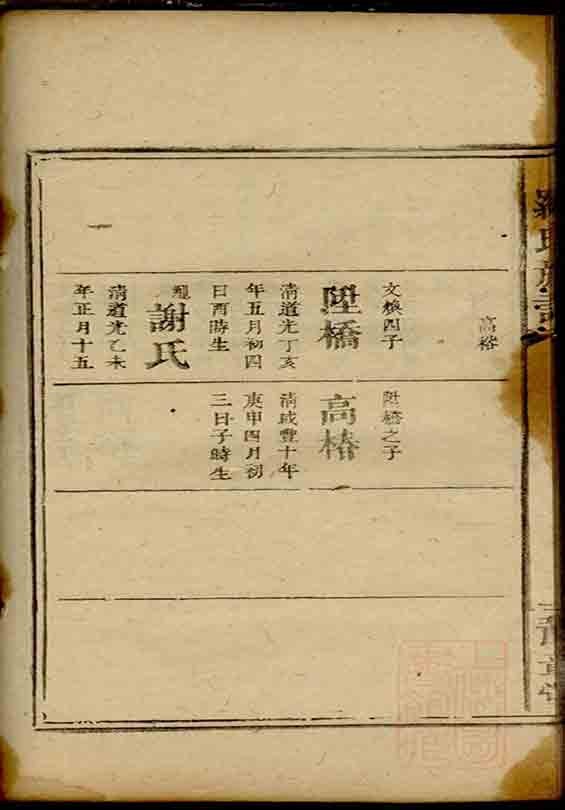 高格
文煥四子
陞橋
清道光丁亥
年五月初四
日酉時生
配
謝氏
清道光乙未
年正月十五
陞橋之子
高椿
清咸豐十年
庚申四月初
三日子時生